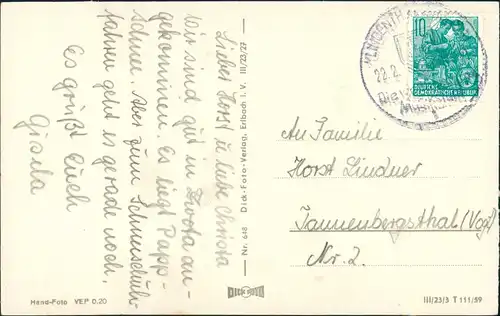 Lieber Horst u. liebe Christa
Wir sind gut in Zwota an-
gekommen. Es liegt Papp-
schnee. Aber zum Schneeschuh-
fahren geht es gerade noch.
Es grüßt Euch
Gisela
Hand-Foto VEP 0.20
Nr. 648 Dick-Foto-Verlag, Erlbach i. V. III/23/27
KLINGENTHAL
22.2.
10
DEUTSCHE
DEMOKRATISCHE REPUBLIK
An Familie
Horst Lindner
Tannenbergsthal (Vogtl)
Nr. 2.
III/23/3 T 111/59